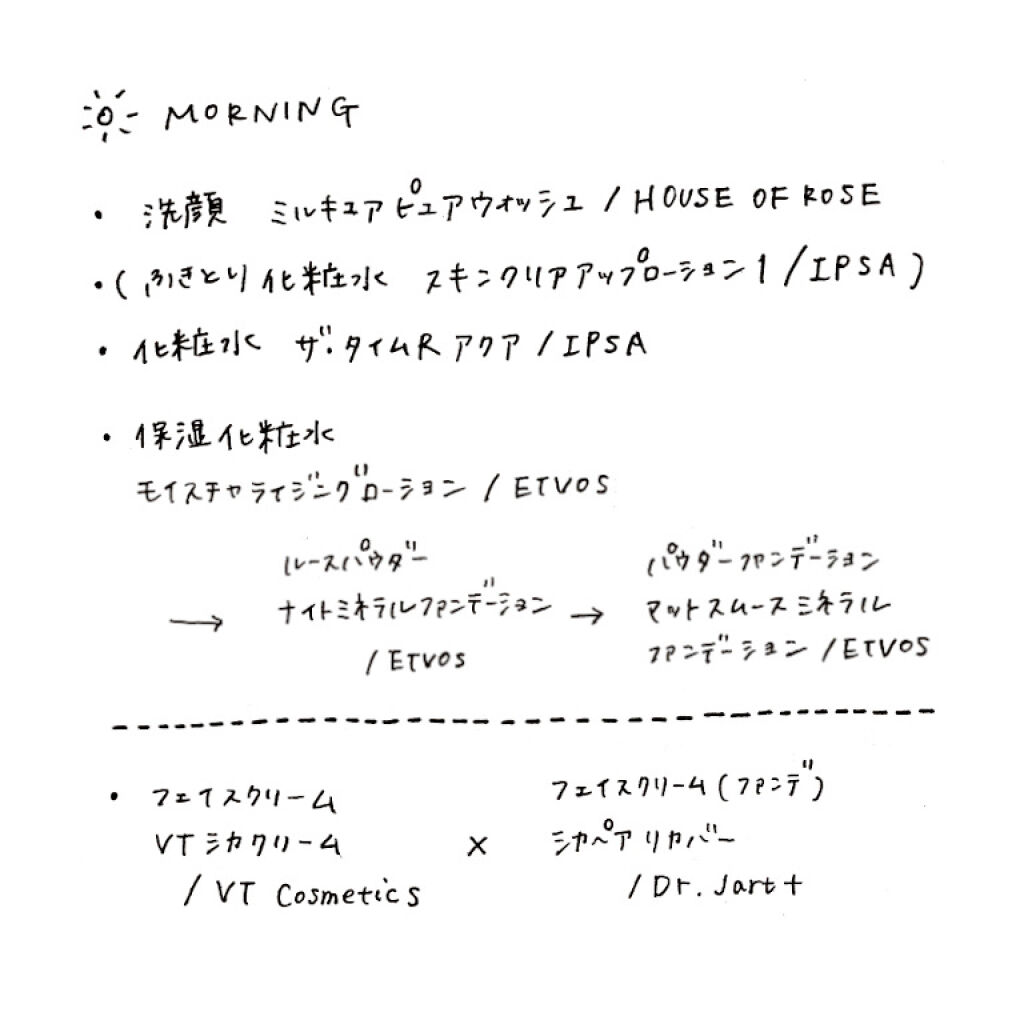 MORNING
・ 洗顔 ミルキュアピュアウォッシュ / HOUSE OF ROSE
・( ふきとり化粧水 スキンクリアアップローション1 / IPSA )
・ 化粧水 ザ・タイムR アクア / IPSA
・ 保湿化粧水
モイスチャライジングローション / ETVOS
ルースパウダー
→ ナイトミネラルファンデーション
/ ETVOS
→ パウダーファンデーション
マットスムースミネラル
ファンデーション / ETVOS
・ フェイスクリーム
VT シカクリーム
/ VT Cosmetics
×
フェイスクリーム ( ファンデ )
シカペア リカバー
/ Dr. Jart+